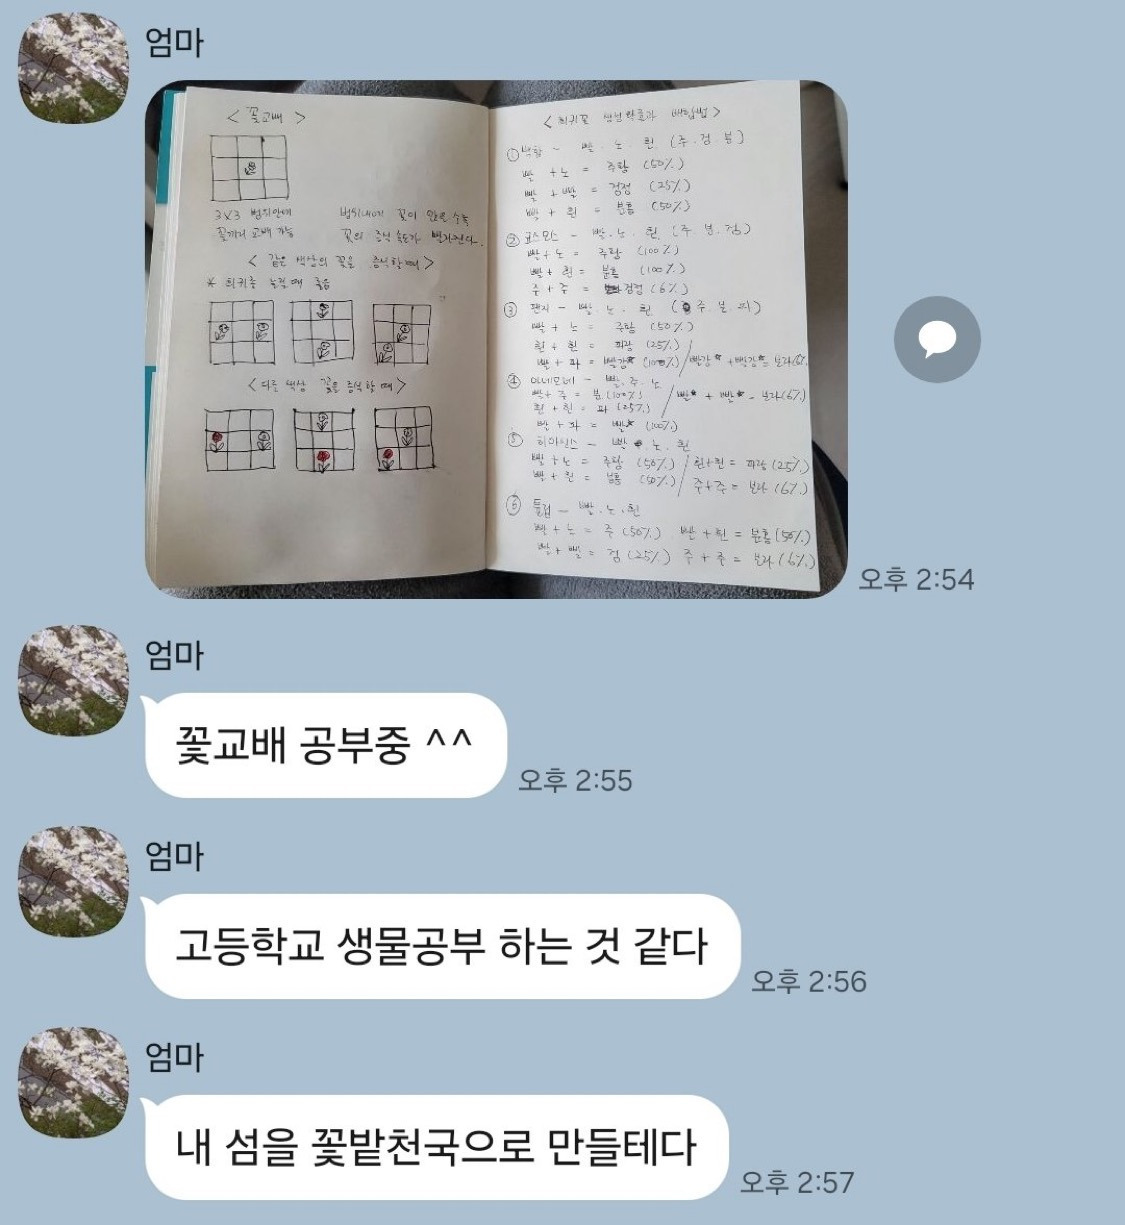 엄마
< 꽃교배 >
3X3 범위안에
꽃끼리 교배 가능
범위내에 꽃이 많을수록
꽃의 증식 속도가 빨라진다.
< 같은 색상의 꽃을 증식할때 >
* 희귀종 노릴때 좋음
< 다른 색상 꽃을 증식할때 >
< 희귀꽃 생성확률과 배합법 >
① 백합 - 빨. 노. 흰 (주.검.분)
빨 + 노 = 주황 (50%)
빨 + 빨 = 검정 (25%)
빨 + 흰 = 분홍 (50%)
② 코스모스 - 빨. 노. 흰 (주.분.검)
빨 + 노 = 주황 (100%)
빨 + 흰 = 분홍 (100%)
주 + 주 = 검정 (6%)
③ 팬지 - 빨. 노. 흰 (주.보.파)
빨 + 노 = 주황 (50%)
흰 + 흰 = 파랑 (25%)
빨 + 파 = 빨강* (100%) / 빨강* + 빨강* = 보라(6%)
④ 아네모네 - 빨. 주. 노
빨 + 주 = 분(100%) / 빨* + 빨* - 보라(6%)
흰 + 흰 = 파 (25%)
빨 + 파 = 빨* (100%)
⑤ 히아신스 - 빨 노. 흰
빨 + 노 = 주황 (50%) / 흰+흰 = 파랑 (25%)
빨 + 흰 = 분홍 (50%) / 주+주 = 보라 (6%)
⑥ 튤립 - 빨. 노. 흰
빨 + 노 = 주 (50%) 빨 + 흰 = 분홍 (50%)
빨 + 빨 = 검 (25%) 주 + 주 = 보라 (6%)
오후 2:54
엄마
꽃교배 공부중 ^^
오후 2:55
엄마
고등학교 생물공부 하는 것 같다
오후 2:56
엄마
내 섬을 꽃밭천국으로 만들테다
오후 2:57